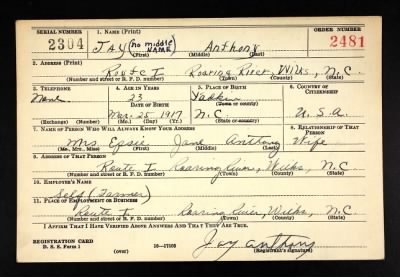 SERIAL NUMBER 1. NAME (Print) ORDER NUMBER
2304 JAY (no middle NAME) Anthony 2481
(First) (Middle) (Last)
2. ADDRESS (Print)
Route 1 Roaring River, Wilks, N.C.
(Number and street or R. F. D. number) (Town) (County) (State)
3. TELEPHONE 4. AGE IN YEARS 5. PLACE OF BIRTH 6. COUNTRY OF CITIZENSHIP
None 23 Yadkin
DATE OF BIRTH (Town or county)
Mar. 25 1917 N.C. U.S.A.
(Exchange) (Number) (Mo.) (Day) (Yr.) (State or country)
7. NAME OF PERSON WHO WILL ALWAYS KNOW YOUR ADDRESS 8. RELATIONSHIP OF THAT PERSON
Mrs Epsie Jane Anthony Wife
(Mr., Mrs., Miss) (First) (Middle) (Last)
9. ADDRESS OF THAT PERSON
Route 1 Roaring River, Wilks, N.C.
(Number and street or R. F. D. number) (Town) (County) (State)
10. EMPLOYER'S NAME
Self (Farmer)
11. PLACE OF EMPLOYMENT OR BUSINESS
Route 1 Roaring River, Wilks, N.C.
(Number and street or R. F. D. number) (Town) (County) (State)
I AFFIRM THAT I HAVE VERIFIED ABOVE ANSWERS AND THAT THEY ARE TRUE.
REGISTRATION CARD
D. S. S. Form 1 (over) 16—17105 Jay Anthony
(Registrant's signature)